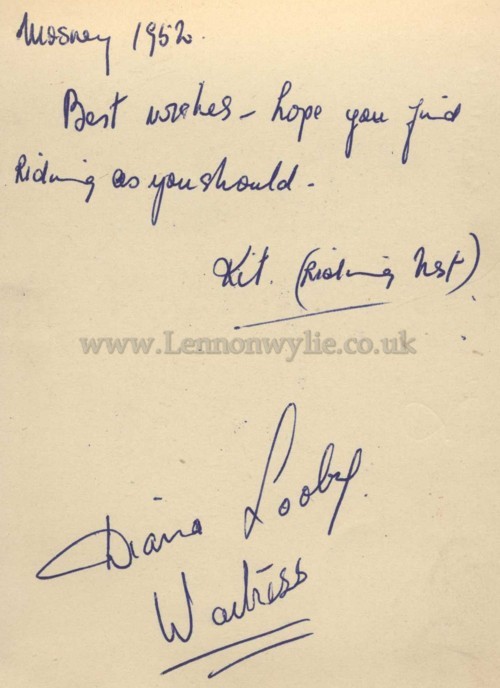 Mosney 1952.
Best wishes - hope you find
Riding as you should -
Kit. (Riding Inst)
www.Lennonwylie.co.uk
Diana Looby.
Waitress